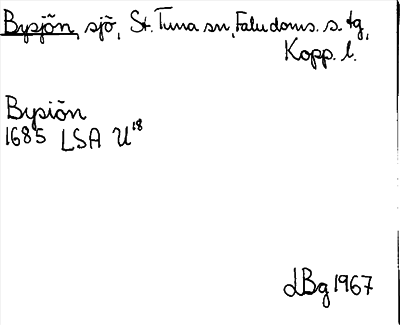 Bysjön, sjö, St. Tuna sn, Falu doms. s. tg,
Kopp. l.
Bysiön
1685 LSA U18
LBg 1967